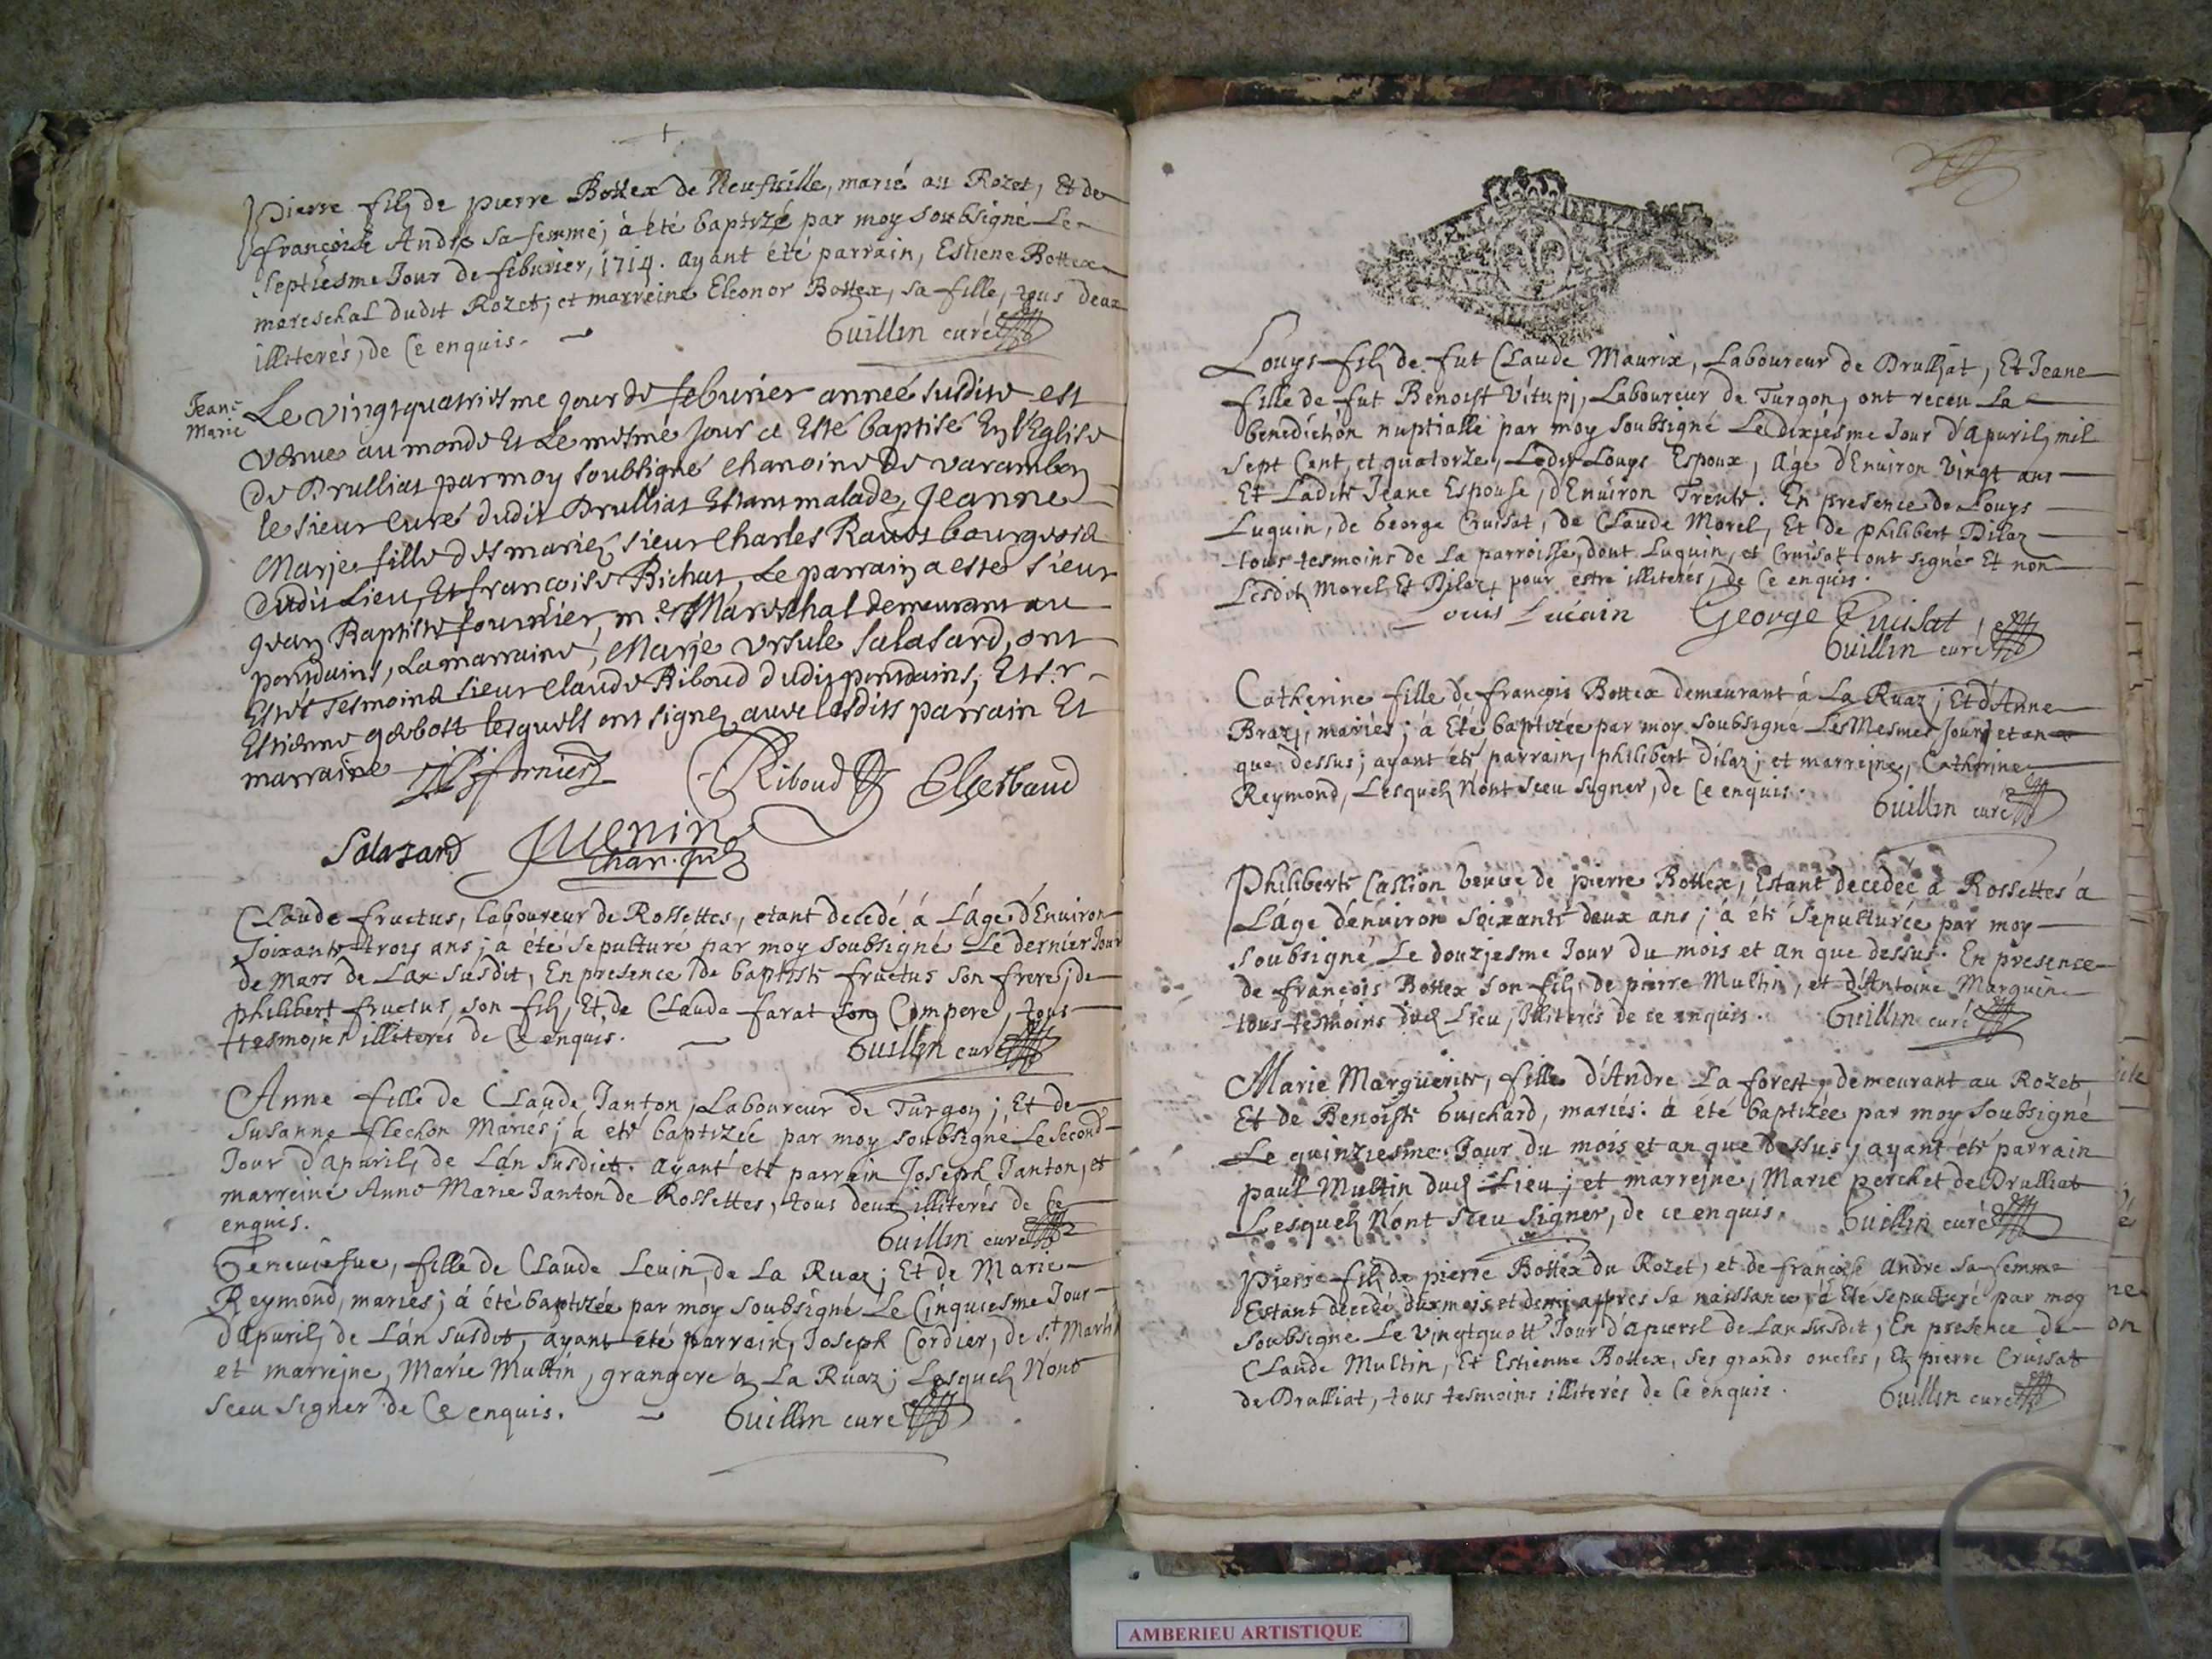 Pierre fils de pierre Bottex de Neufuille, marié au Rozet, Et de
françoise André sa femme; à été baptizé par moy soubsigné Le
septiesme Jour de feburier, 1714. ayant été parrain, Estiene Bottex
mareschal dudit Rozet; et marreine Eleonor Bottex, sa fille, tous deux
illiterés, de Ce enquis.
Guillin curé
Jeane
Marie
Le vingtquatriesme jour de feburier anneé susdite est
venue au monde Et Le mesme Jour a Esté baptisé En l'Eglise
de Drulliat par moy soubsigné chanoine de varambon
le sieur curé dudit Drulliat Estant malade, Jeanne
Marje fille des mariez sieur Charles Rauot bourgeois
dudit Lieu, Et francoise Bichat, Le parrain a esté sieur
jean Baptiste fournier, m.e Mareschal demeurant au
pontdains, La marraine, Marje Ursule Salasard, ont
Estés Tesmoins sieur Claude Riboud dudit pontdains, Et s.r
Estienne gerbost lesquels ont signez auec lesdits parrain Et
marraine
Riboud
Salazard
Juenin
chan.
Claude fructus, laboureur de Rossettes, etant decedé à L'áge d'Enuiron
soixante-trois ans; a été sepulturé par moy soubsigné Le dernier Jour
de Mars de Lan susdit, En presence de baptiste fructus son frere; de
philibert fructus, son fils, Et de Claude farat son Compere, tous
tesmoins illiterés de Ce enquis.
Guillin curé
Anne fille de Claude Janton, Laboureur de Turgon; Et de
Susanne flechon Mariés; a eté baptizée par moy soubsigné Le second
Jour d'apuril, de Lán susdict. ayant eté parrain Joseph Janton, et
marreine Anne Marie Janton de Rossettes, tous deux illiterés de Ce
enquis.
Guillin curé
Geneuiefue, fille de Claude Leuin, de La Ruaz; Et de Marie
Reymond, mariés; á été baptizée par moy soubsigné Le Cinquiesme Jour
d'apuril, de Lán susdit, ayant été parrain, Joseph Cordier, de S.t Martin
et marrejne, Marie Multin, grangere á La Ruaz; Lesquels N'ont
sceu signer de Ce enquis.
Guillin curé
Louys fils de fut Claude Maurix, Laboureur de Drulliat, Et Jeane
fille de fut Benoist Vitupj, Laboureur de Turgon, ont receu La
benediction nuptialle par moy soubsigné Le dixiesme Jour d'apuril, mil
sept Cent, et quatorze, Ledit Louys Espoux, áge d'Enuiron vingt ans
Et Ladite Jeane Espouse, d'Enuiron Trente. En presence de Louys
Luquin, de George Cruisat, de Claude Morel, Et de philibert Dilaz
tous tesmoins de La parroisse, dont Luquin, et Cruisat ont signé Et non
Lesdits Morel Et Dilaz, pour estre illiterés, de Ce enquis.
Louis Lucain George Cruisat
Guillin curé
Catherine fille de françois Bottex demeurant á La Ruaz; Et d'Anne
Brazj, mariés; á Eté baptizée par moy soubsigné Les Mesmes Jour et an
que dessus; ayant été parrain, philibert dilaz; et marrejne, Catherine
Reymond, Lesquels N'ont sceu signer, de Ce enquis.
Guillin curé
Philiberte Cassion veuue de pierre Bottex, Estant decedeé á Rossettes á
L'áge d'enuiron soixante deux ans; á été sepulturée par moy
soubsigné Le douzjesme Jour du mois et an que dessus. En presence
de françois Bottex son fils, de pierre Multin, et d'Antoine Marguin
tous tesmoins dud. Lieu, Illiterés de ce enquis.
Guillin curé
Marie Marguerite, fille d'Andre La forest, demeurant au Rozet
Et de Benoiste Guichard, mariés: á été baptizée par moy soubsigné
Le quinziesme Jour du mois et an que dessus, ayant été parrain
paul Multin dud. Lieu; et marrejne, Marie perchet de Drulliat
Lesquels N'ont sceu signer, de ce enquis.
Guillin curé
Pierre fils de pierre Bottex du Rozet, et de françoise andre sa femme
Estant decedé deux mois et demi appres sa naissance, á Eté sepulturé par moy
soubsigné Le vingtquatr.e Jour d'apuril de Lan susdit, En presence de
Claude Multin, Et Estienne Bottex, ses grands oncles, Et pierre Cruisat
de Drulliat, tous tesmoins illiterés de Ce enquis.
Guillin curé
AMBERIEU ARTISTIQUE